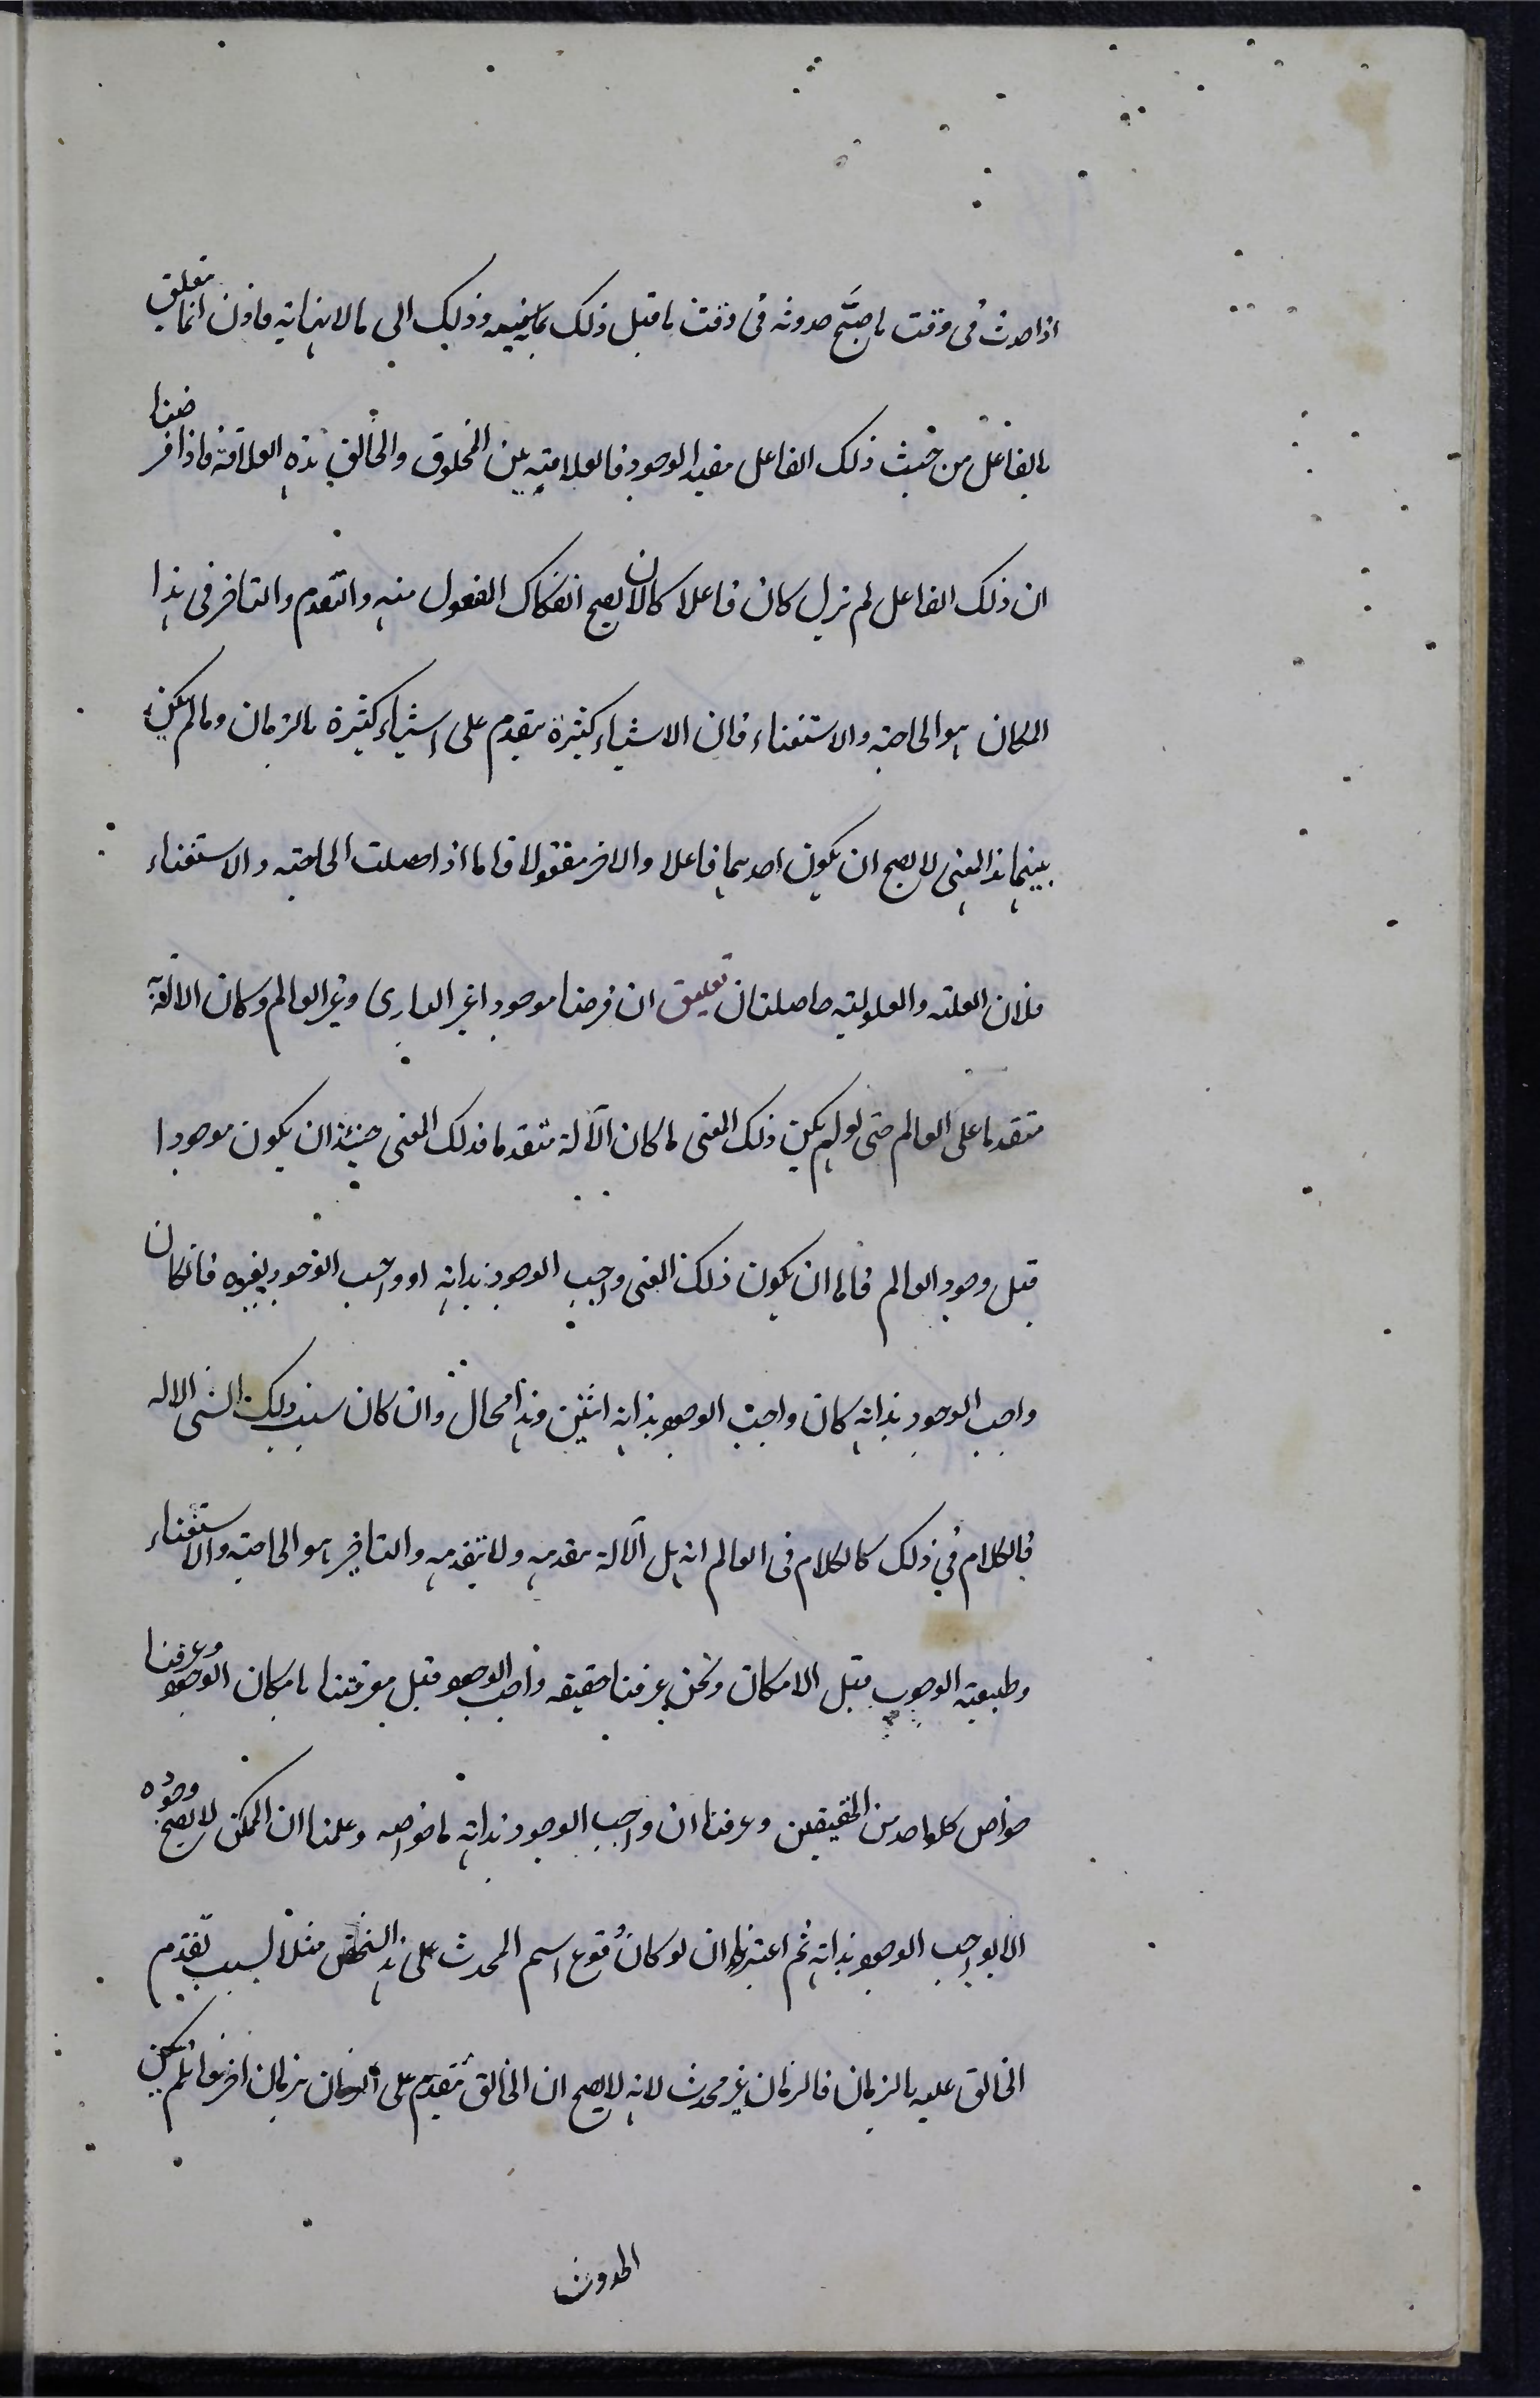 اذا حدث فی وقت ما صحّ حدوثه فی وقت ما قبل ذلک بعینه وذلک الی مالا نهایة فاذن انما تعلق
بالفاعل من حیث ذلک الفاعل مفید الوجود فالعلاقة بین المخلوق والخالق هذه العلاقة فاذا فرضنا
ان ذلک الفاعل لم یزل کان فاعلا کان لا یصح انفکاک المفعول منه والتقدم والتاخر فی هذا
المکان هو الحاجة والاستغناء فان الاشیاء کثیرة یتقدم علی اشیاء کثیرة بالزمان ومالم یکن
بینهما هذا المعنی لا یصح ان یکون احدهما فاعلا والاخر مفعولا فاما اذا حصلت الحاجة والاستغناء
فلان العلة والمعلولیة حاصلتان تعلیق ان فرضنا موجودا غیر الباری وغیر العالم وکان الآلة به
متقدما علی العالم حتی لو لم یکن ذلک المعنی لما کان الآلة متقدما فذلک المعنی حینئذ ان یکون موجودا
قبل وجود العالم فاما ان یکون ذلک المعنی واجب الوجود بذاته او واجب الوجود بغیره فانکان
واجب الوجود بذاته کان واجب الوجود بذاته اثنین وهذا محال وان کان سبب ذلک الشی الاله
فالکلام فی ذلک کالکلام فی العالم انه هل الآلة یتقدمه ولا یتقدمه والتاخر هو الحاجة والاستغناء
وطبیعة الوجوب قبل الامکان ونحن عرفنا حقیقه واجب الوجود قبل معرفتنا بامکان الوجود وعرفنا
خواص کلواحد من الحقیقتین وعرفنا ان واجب الوجود بذاته ما خواصه وعلمنا ان الممکن لا یصح وجوده
الا بواجب الوجود بذاته ثم اعتبرنا ان لو کان وقوع اسم المحدث علی هذا الشخص مثلا بسبب تقدم
الخالق علیه بالزمان فالزمان غیر محدث لانه لا یصح ان الخالق تقدم علی الزمان بزمان اخر فلم یکن
الحدوث